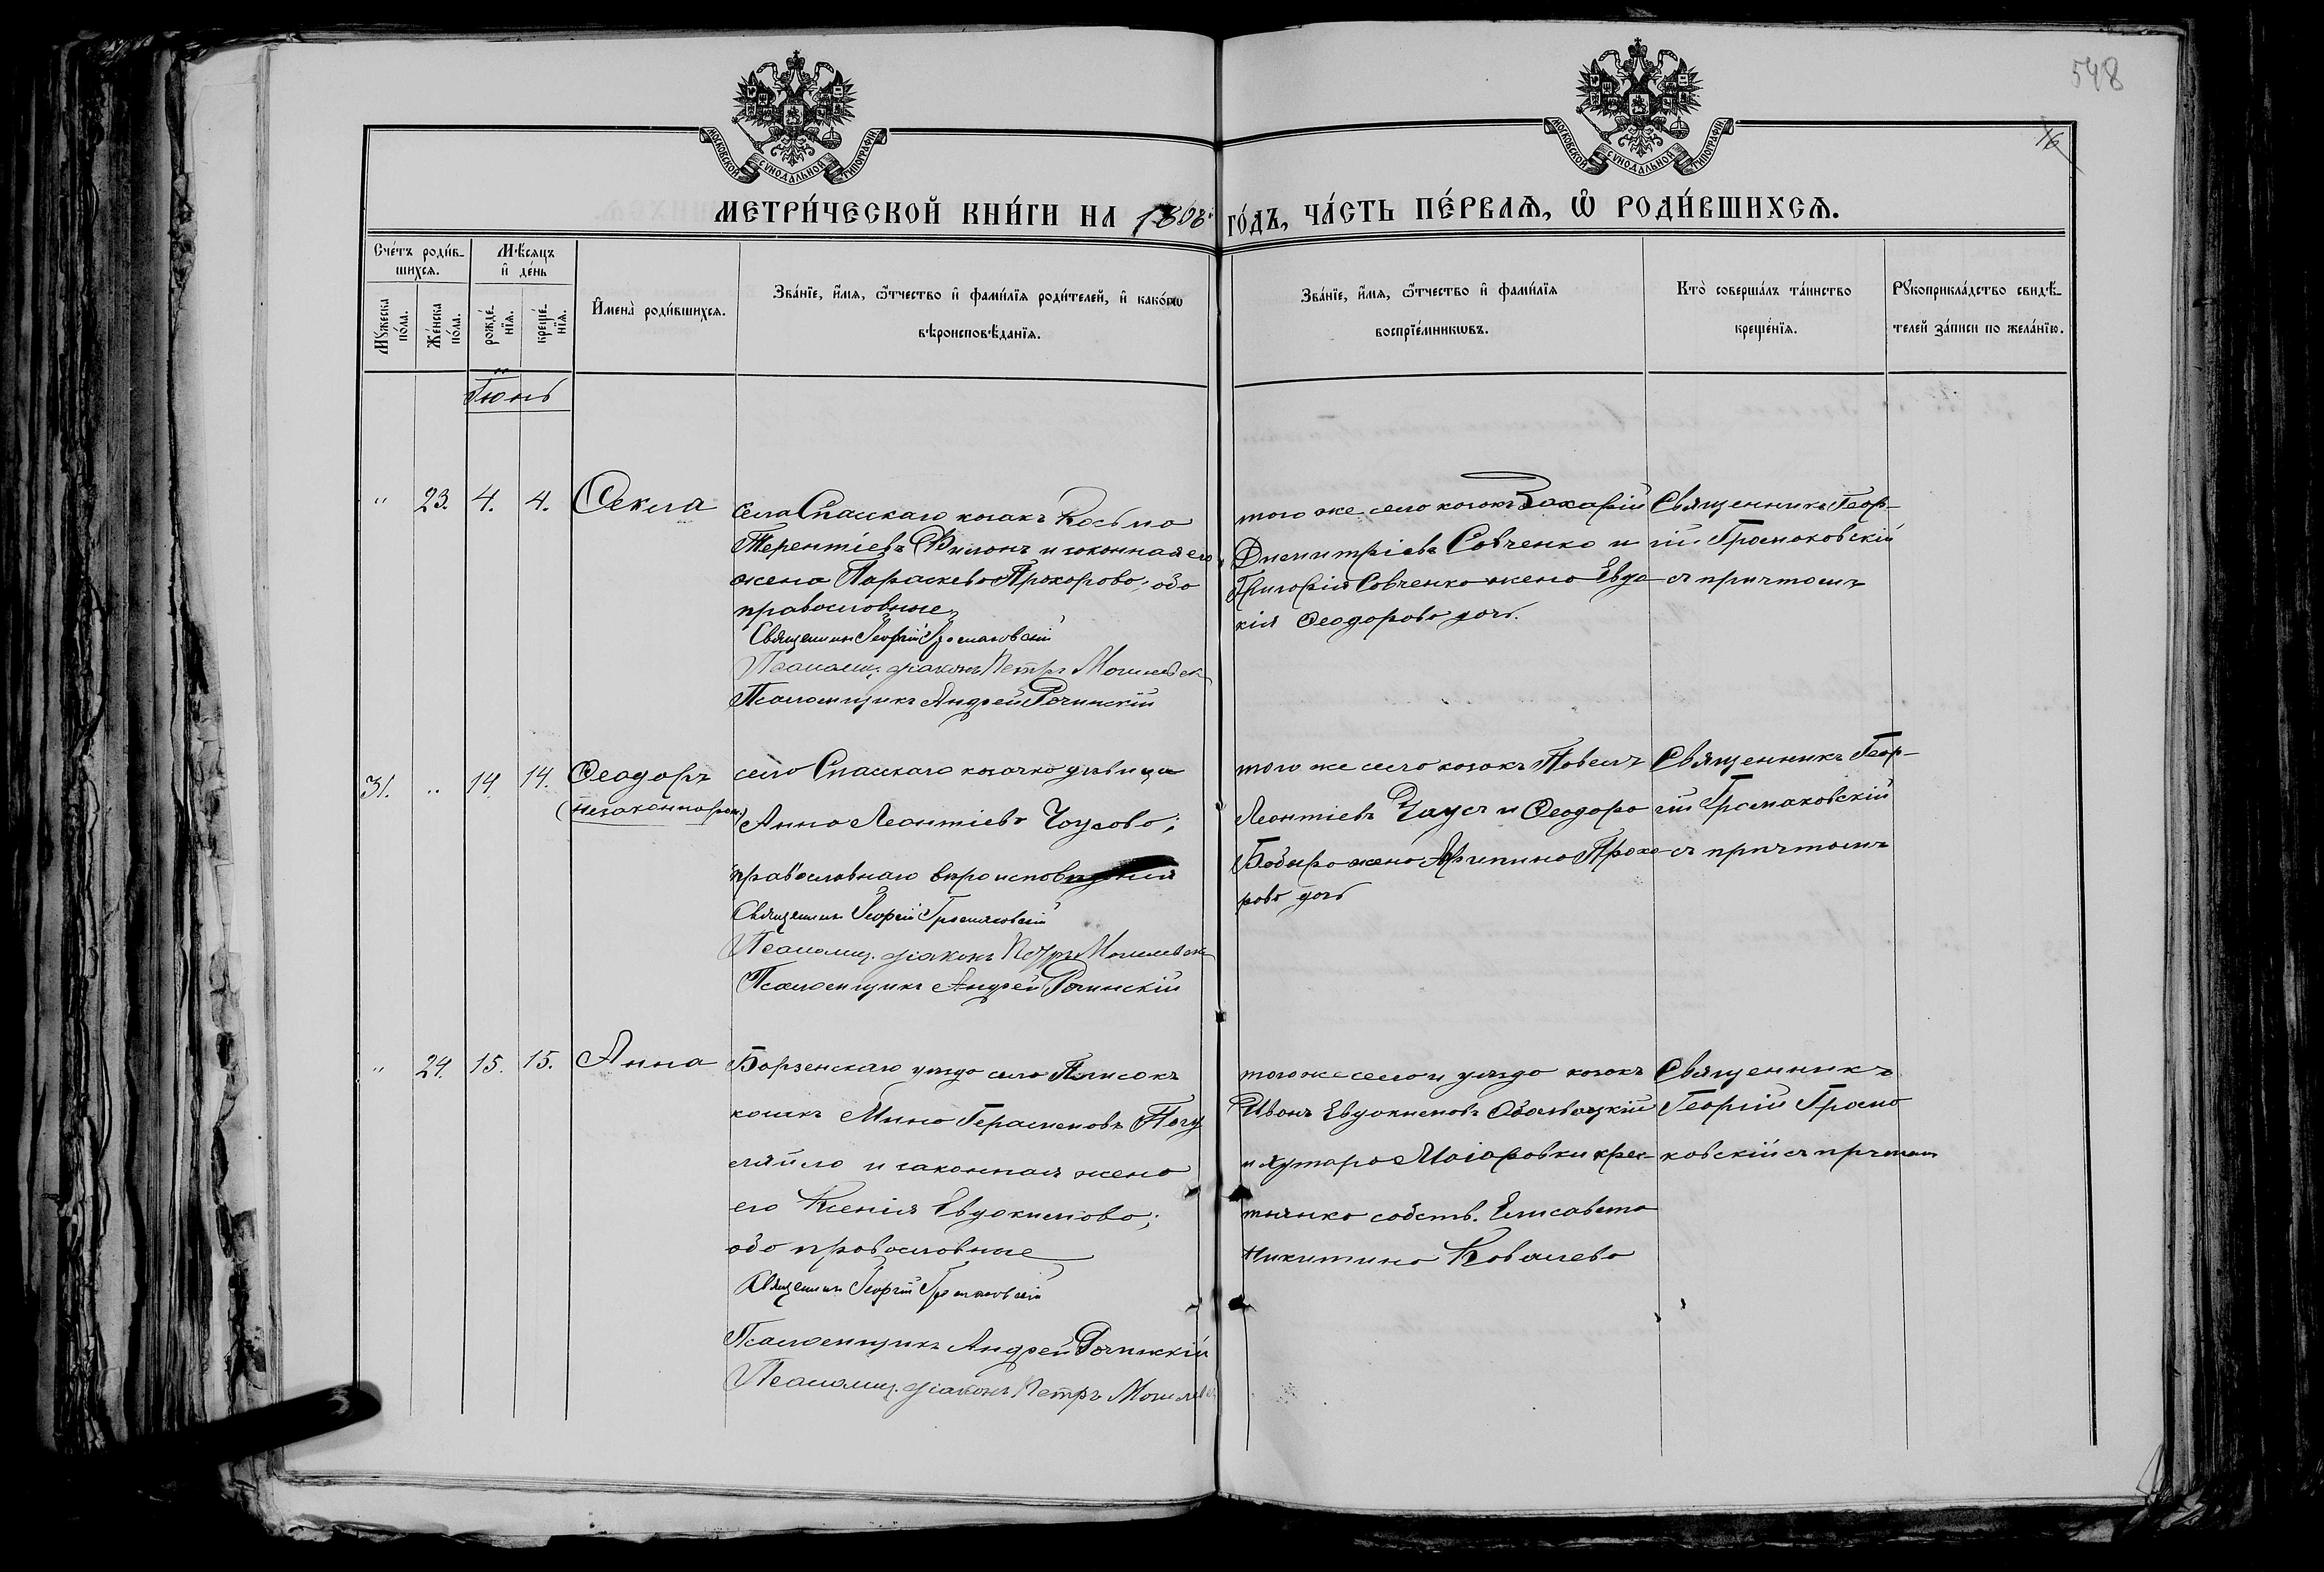 548
16
МОСКОВСКОЙ СѴНОДАЛЬНОЙ ТИПОГРАФІИ
МОСКОВСКОЙ СѴНОДАЛЬНОЙ ТИПОГРАФІИ
МЕТРИ́ЧЕСКОЙ КНИ́ГИ НА ГО́ДЪ, ЧА́СТЬ ПЕ́РВАѦ, Ѽ РОДИ́ВШИХСѦ.
Сче́тъ роди́в-
шихсѧ.
Мꙋ́жеска
по́ла.
Же́нска
по́ла.
Мѣ́сѧцъ
и҆ де́нь
рожде́-
нїѧ.
креще́-
нїѧ.
И҆мена̀ роди́вшихсѧ.
Зва́нїе, и҆́мѧ, ѻ҆́тчество и҆ фамі́лїѧ роди́телей, и҆ како́гѡ
вѣроисповѣ́данїѧ.
Зва́нїе, и҆́мѧ, ѻ҆́тчество и҆ фамі́лїѧ
воспрїе́мникѡвъ.
Кто̀ соверша́лъ та́инство
креще́нїѧ.
Рꙋкоприкла́дство свидѣ́-
телей за́писи по жела́нїю.
Іюнь
" 23. 4. 4. Ѳекла
села Спаскаго козакъ Косьма
Терентіевъ Филонъ и законная его
жена Параскева Прохорова; оба
православные
Священникъ Георгій Громаковскій
Псаломщ. діаконъ Петръ Могилевск
Псаломщикъ Андрей Рочинскій
того же села козакъ Захарій
Димитріевъ Савченко и
Григорія Савченко жена Евдо-
кія Ѳеодорова дочь.
Священникъ Геор-
гій Громаковскій
съ причтомъ
31. " 14. 14. Ѳеодоръ
(незаконнорож.)
села Спаскаго козачка дѣвица
Анна Леонтіева Чаусова;
православнаго вѣроисповѣданія
Священникъ Георгій Громаковскій
Псаломщ. діаконъ Петръ Могилевск
Псаломщикъ Андрей Рочинскій
того же села козакъ Павелъ
Леонтіевъ Чаусъ и Ѳеодора
жена Прохо-
рова дочь
Священникъ Геор-
гій Громаковскій
съ причтомъ
" 24. 15. 15. Анна
Борзенскаго уѣзда села
козакъ Мина Герасимовъ
и законная жена
его Ксенія Евдокимова;
оба православные
Священникъ Георгій Громаковскій
Псаломщикъ Андрей Рочинскій
Псаломщ. діаконъ Петръ Могилевск
того же села и уѣзда козакъ
Иванъ Евдокимовъ
и хутора Маіоровки крес-
тьянка собств. Елисавета
Никитина Ковалева
Священникъ
Георгій Грома
ковскій съ причтом